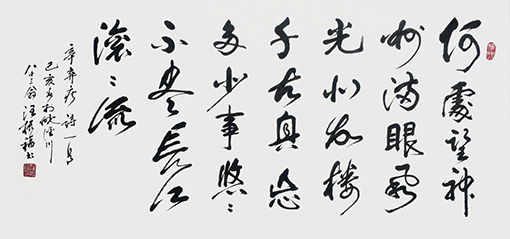 何處望神
州滿眼風
光北固樓
千古興亡
多少事悠〻
不盡長江
滚〻流
辛弃疾诗一首
己亥 川
八十三翁汪振福书